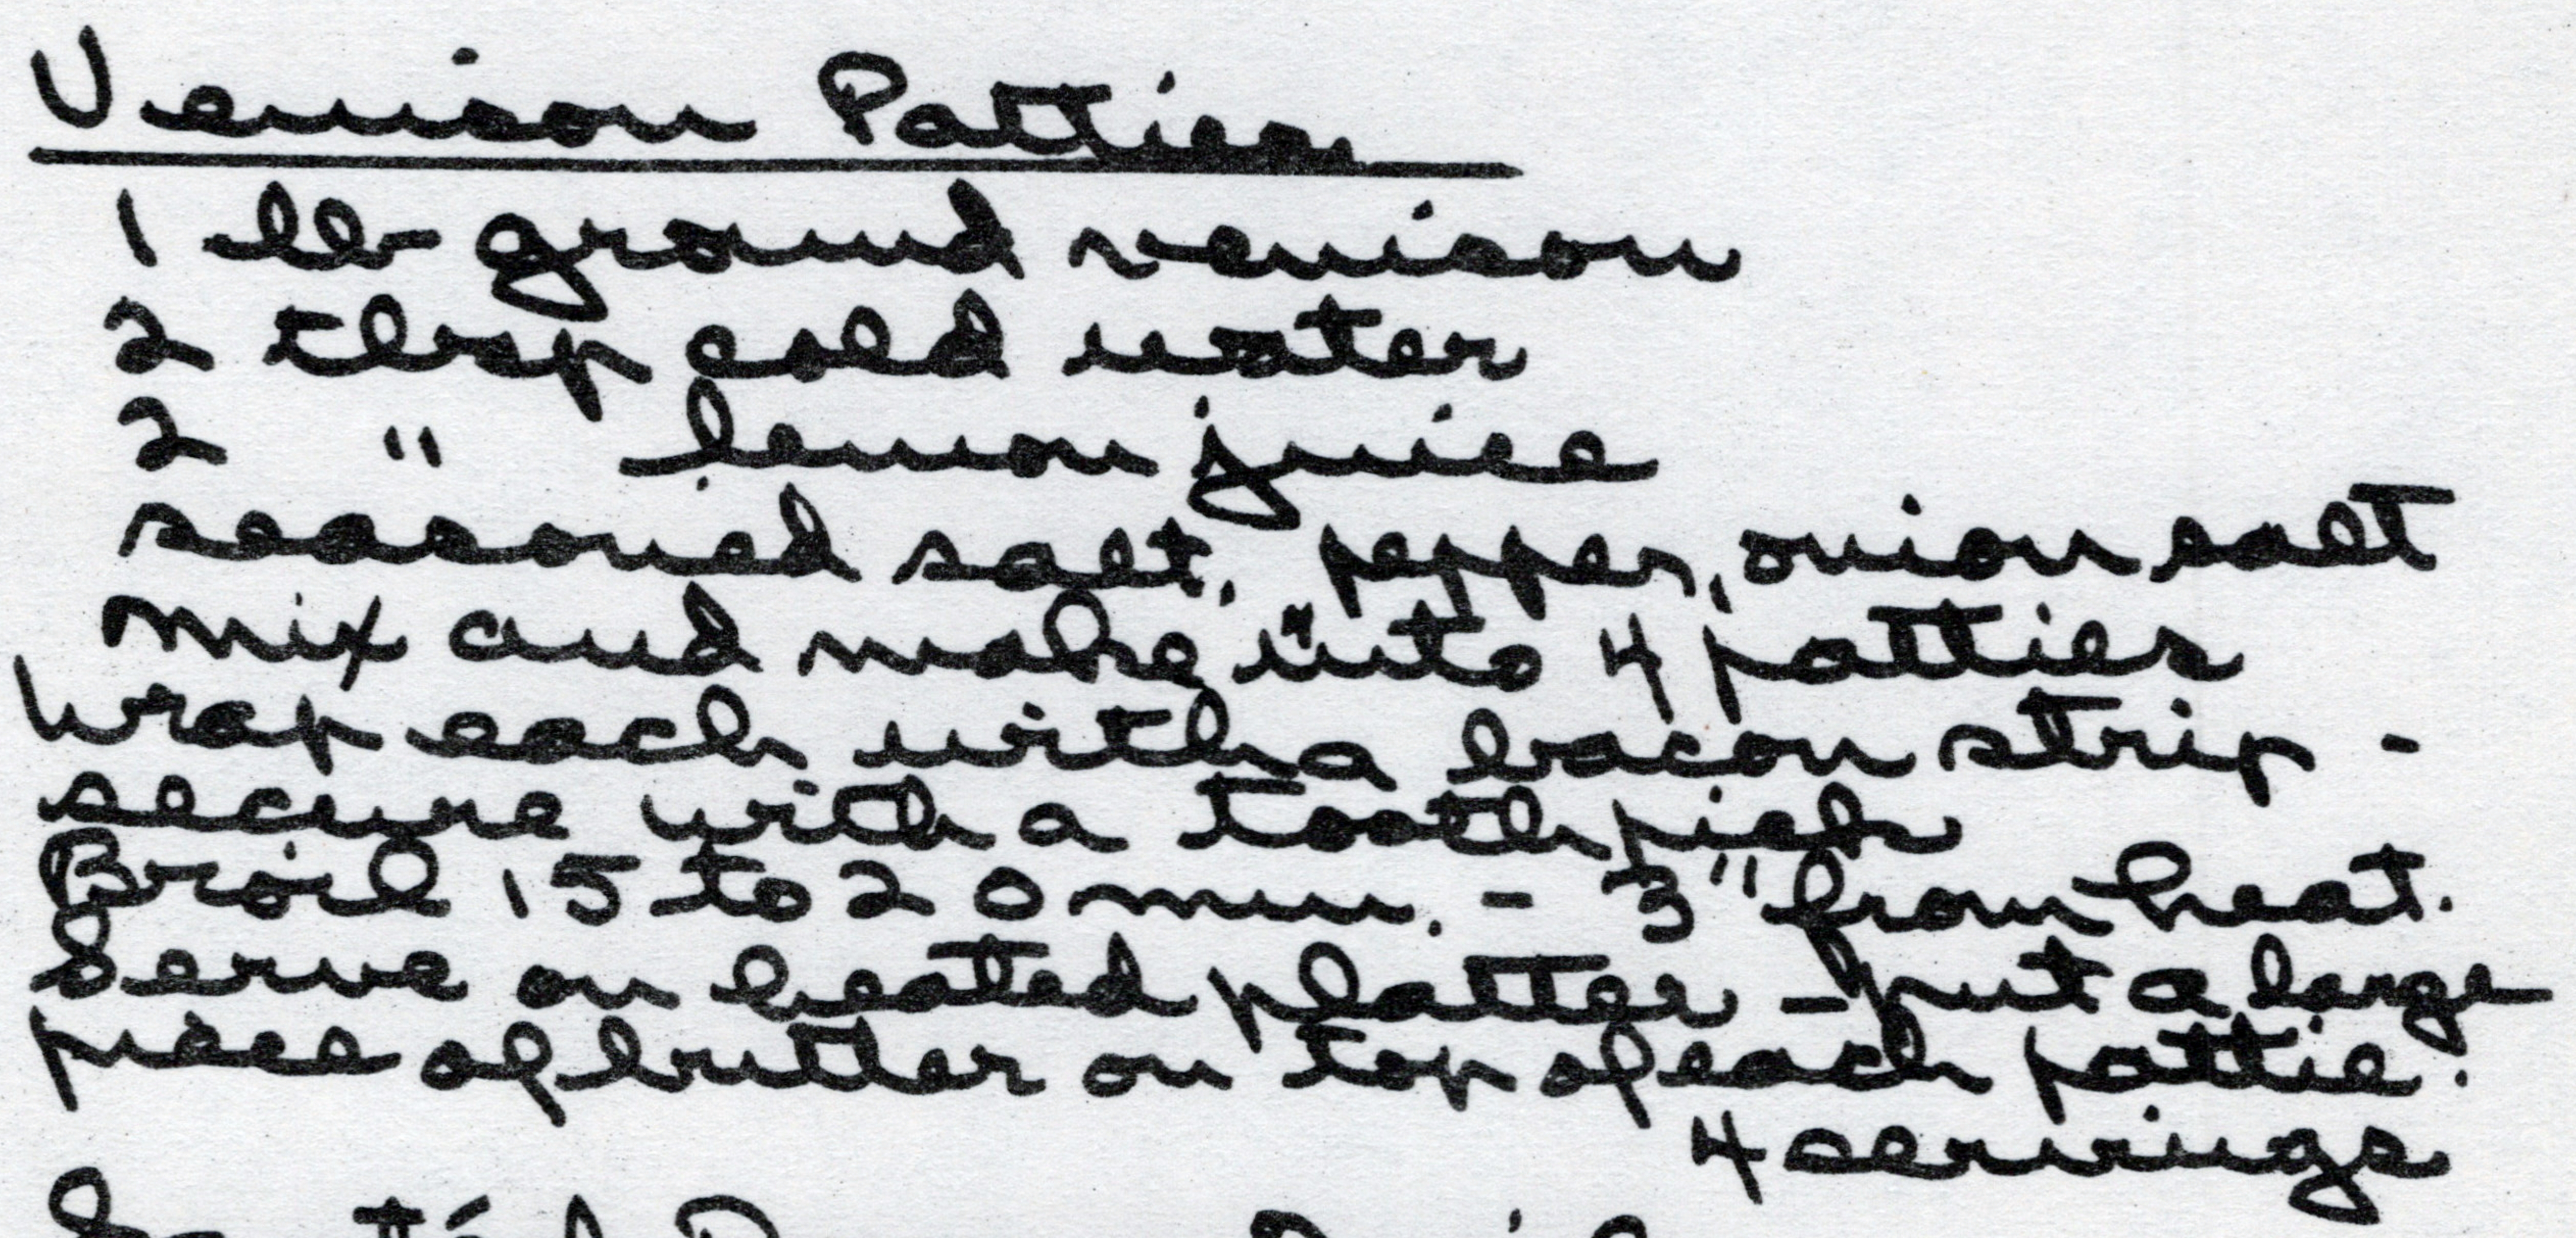 Venison Patties
1 lb ground venison
2 tbsp cold water
2 " lemon juice
seasoned salt, pepper, onion salt
mix and make into 4 patties
Wrap each with a bacon strip -
secure with a toothpick
Broil 15 to 20 min. - 3" from heat.
Serve on heated platter - put a large
piece of butter on top of each pattie.
4 servings